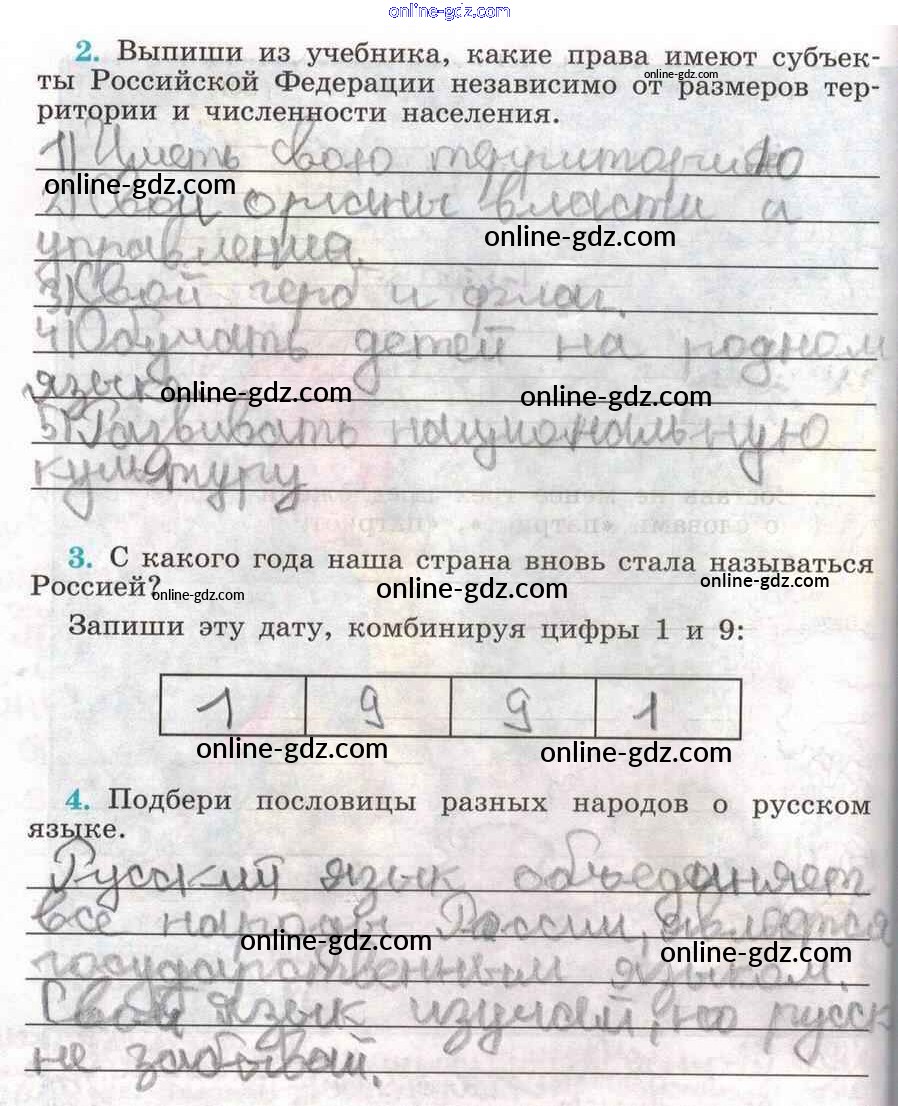 online-gdz.com
2. Выпиши из учебника, какие права имеют субъек-
ты Российской Федерации независимо от размеров тер-
online-gdz.com
ритории и численности населения.
1) Иметь свою территорию
online-gdz.com
2) Свои органы власти и
online-gdz.com
управления.
3) Свой герб и флаг.
4) Обучать детей на родном
языке
online-gdz.com
online-gdz.com
5) Развивать национальную
культуру
3. С какого года наша страна вновь стала называться
Россией?
online-gdz.com
online-gdz.com
online-gdz.com
Запиши эту дату, комбинируя цифры 1 и 9:
1 9 9 1
online-gdz.com
online-gdz.com
4. Подбери пословицы разных народов о русском
языке.
Русский язык объединяет
все народы России, является
online-gdz.com
online-gdz.com
государственным языком.
Свой язык изучай, но русск
не забывай.